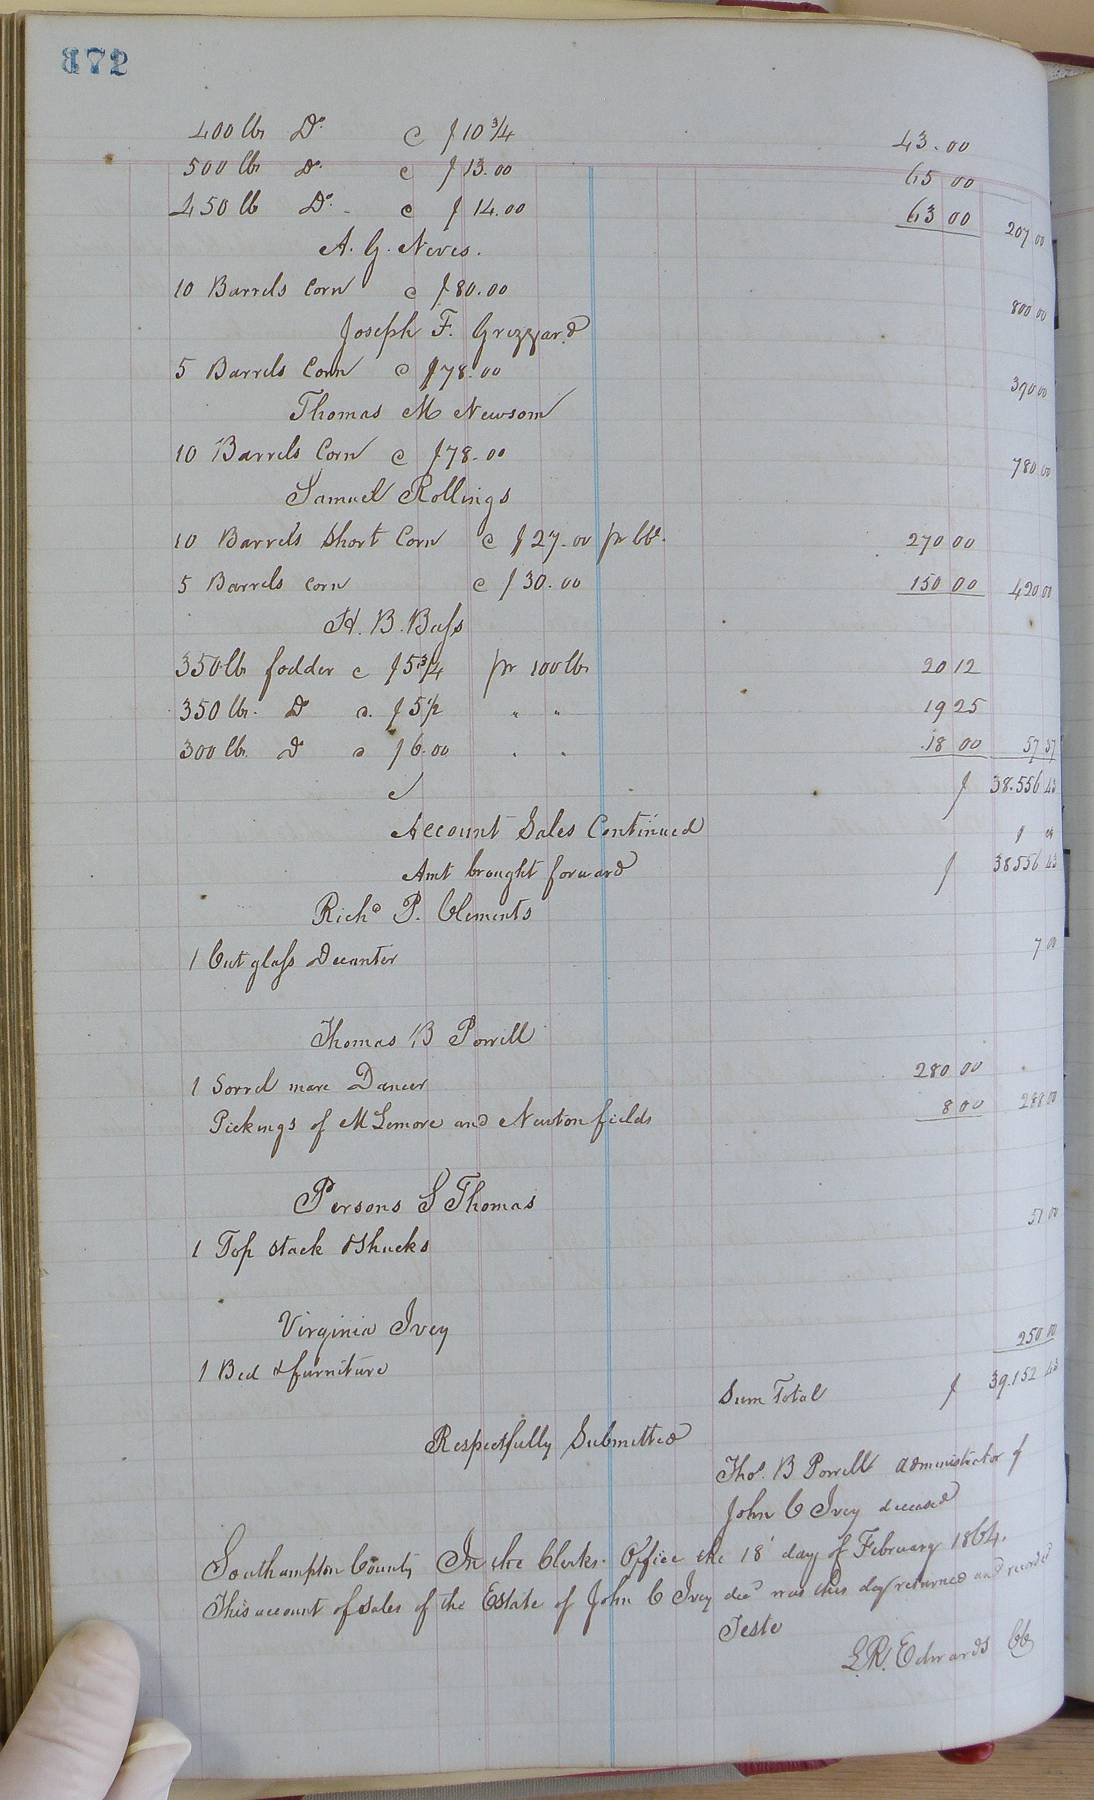 372
400 lbs Do c $10 3/4 43.00
500 lbs Do c $13.00 65 00
450 lb Do - c $14.00 63 00 207 00
A. G. Neves.
10 Barrels Corn c $80.00 800 00
Joseph F. Grizzard
5 Barrels Corn c $78.00 390 00
Thomas M Newsom
10 Barrels Corn c $78.00 780 00
Samuel Rollings
10 Barrels Short Corn c $27.00 pr bbl. 270 00
5 Barrels Corn c $30.00 150 00 420 00
H. B. Bass
350 lbs fodder c $5 3/4 pr 100 lbs 20 12
350 lbs. Do a. $5 1/2 " " 19 25
300 lb. Do a $6.00 " " 18 00 57 37
$ 38.556 43
Account Sales Continued $ cts
Amt brought forward $ 38556 43
Richd P. Clements
1 Cut glass Decanter 7 00
Thomas B Powell
1 Sorrel mare Dancer 280 00
Pickings of McLemore and Newton fields 8 00 288 00
Persons S Thomas
1 Top stack & Shucks 51 00
Virginia Ivey
1 Bed & furniture 250 00
Sum Total $ 39.152 43
Respectfully Submitted
Thos. B Powell administrator of
John C Ivey deceased
Southampton County In the Clerks Office the 18 day of February 1864.
This account of sales of the Estate of John C Ivey decd was this day returned and recorded
Teste
L. R. Edwards CC